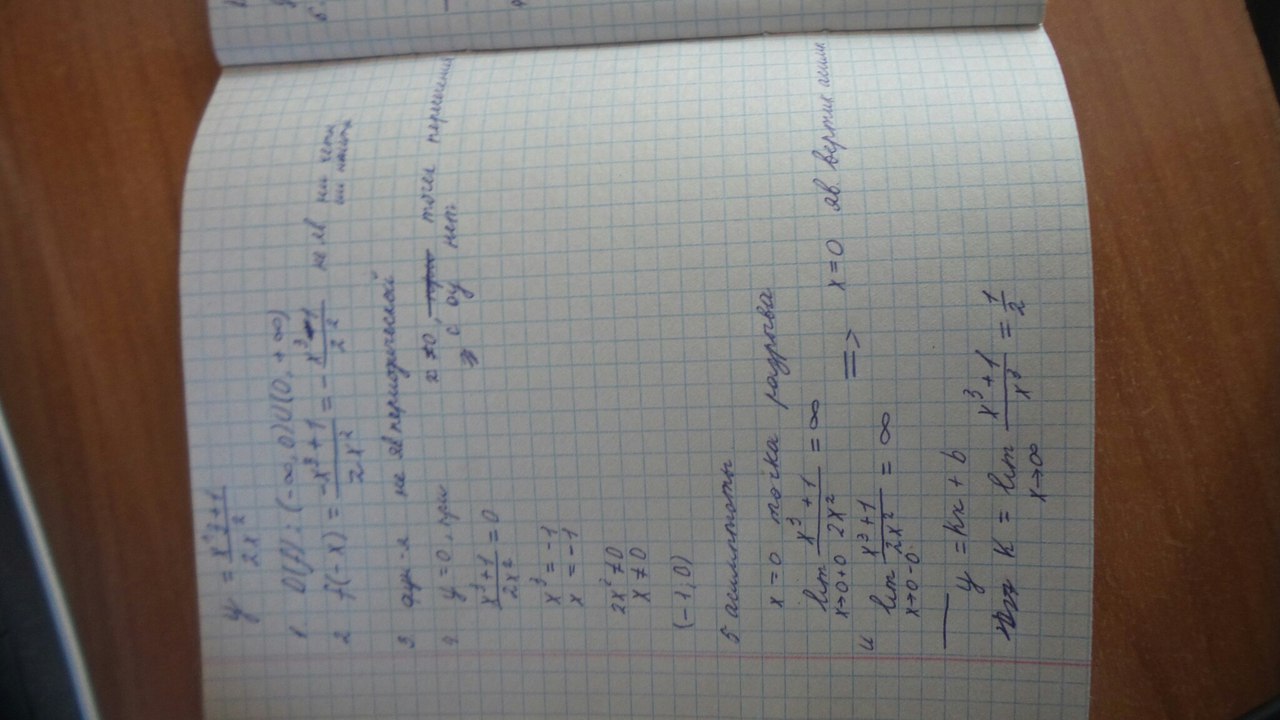 y = x³+1 / 2x²
1 D(f): (-∞, 0)U(0, +∞)
2 f(-x) = -x³+1 / 2x² = - x³-1 / 2² не яв ни чётн ни нечётн
3. фун-я не яв периодической
4. y=0, при x≠0, точек пересечения
x³+1 / 2x² = 0 => с оу нет
x³ = -1
x = -1
2x² ≠0
x ≠0
(-1, 0)
5 асимптоты
x=0 точка разрыва
lim x→0+0 x³+1 / 2x² = ∞
и lim x→0-0 x³+1 / 2x² = ∞ => x=0 яв вертик асимп
y = kx + b
k = lim x→∞ x³+1 / x³ = 1/2